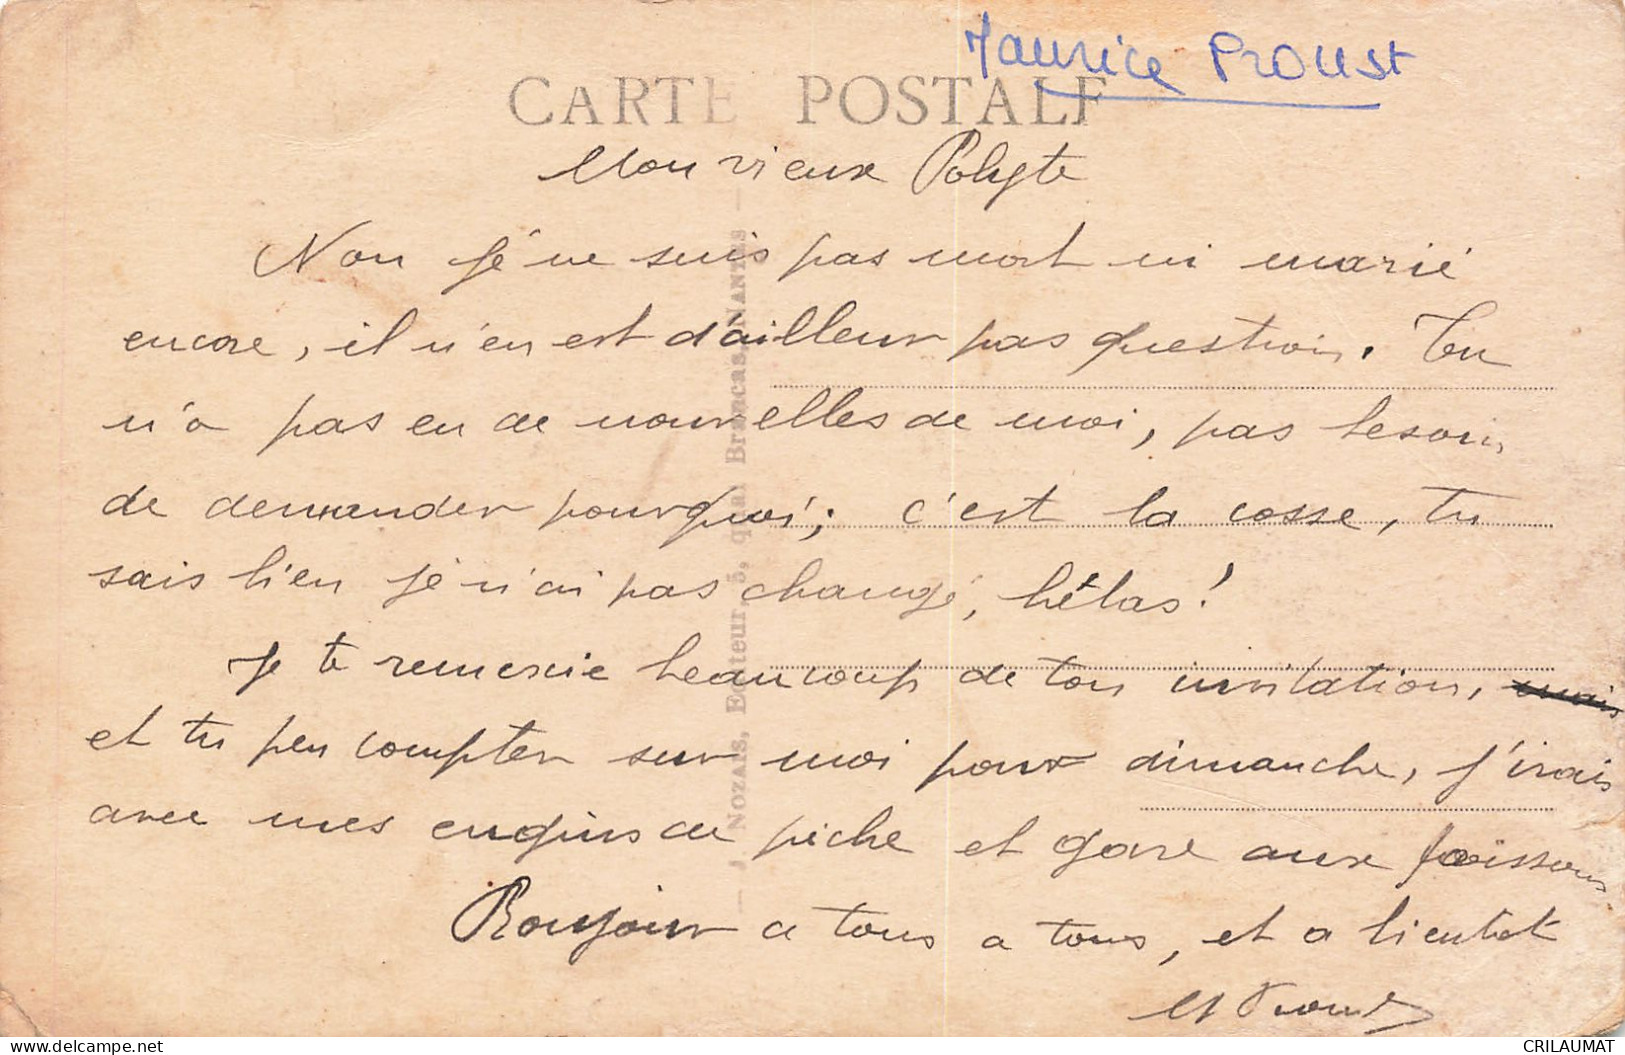 Maurice PROUST
CARTE POSTALE
Mon vieux Polyte
Non je ne suis pas mort ni marié
encore, il n'en est d'ailleur pas question. Tu
n'a pas eu de nouvelles de moi, pas besoin
de demander pourquoi; c'est la cosse, tu
sais bien je n'ai pas changé, hélas!
Je te remercie beaucoup de ton invitation, mais
et tu peu compter sur moi pour dimanche, j'irais
avec mes engins de pêche et gare aux poissons
Bonjour a tous a tous, et a bientot
M Proust
J. Nozais, Editeur, 5, quai Brancas, NANTES
CRILAUMAT